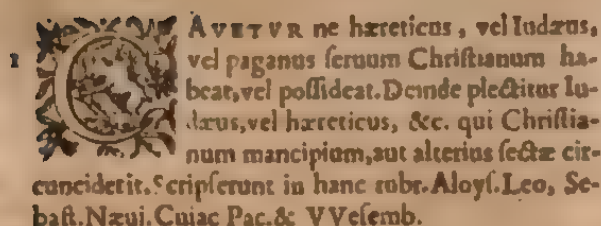 CAVETVR ne hæreticus, vel Iudæus,
1 vel paganus ſeruum Chriſtianum ha-
beat, vel poſſideat. Deinde plectitur Iu-
dæus, vel hæreticus, &c. qui Chriſtia-
num mancipium, aut alterius ſectæ cir-
cunciderit. Scripſerunt in hanc rubr. Aloyſ. Leo, Se-
baſt. Næui. Cuiac Pac. & VVeſemb.